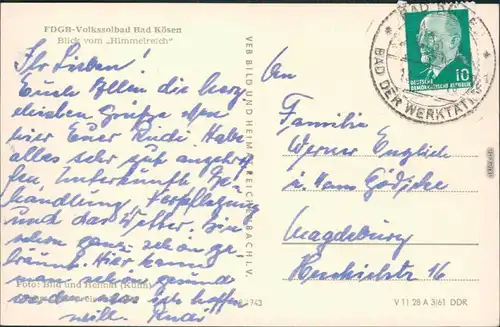 FDGB-Volkssolbad Bad Kösen
Blick vom „Himmelreich"
Ihr Lieben!
Euch Allen die herz
lichsten Grüße von
hier Euer Rudi. Habe
alles sehr gut angetrof
fen, Unterkunft, Be
handlung, Verpflegung
und das Wetter. Bin
schon ganz schön ge-
bräunt. Hier kann
man schon gesund
werden was ich hoffen
will. Rudi
Foto: Bild und Heimat (Kühn)
VEB BILD UND HEIMAT REICHENBACH I. V.
An
Familie
Werner
u. Hans
Magdeburg
16
BAD KÖSEN
BAD DER WERKTÄTIGEN
10
DEUTSCHE
DEMOKRATISCHE REPUBLIK
V 11 28 A 3/61 DDR